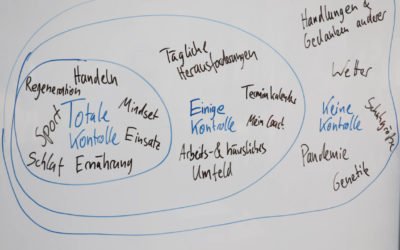 Handeln
Regeneration
Totale
Kontrolle
Mindset
Einsatz
Sport
Schlaf
Ernährung
Tägliche
Herausforderungen
Einige
Kontrolle
Terminkalender
Mein
Arbeits- & häusliches
Umfeld
Handlungen &
Gedanken anderer
Wetter
Keine
Kontrolle
Pandemie
Genetik